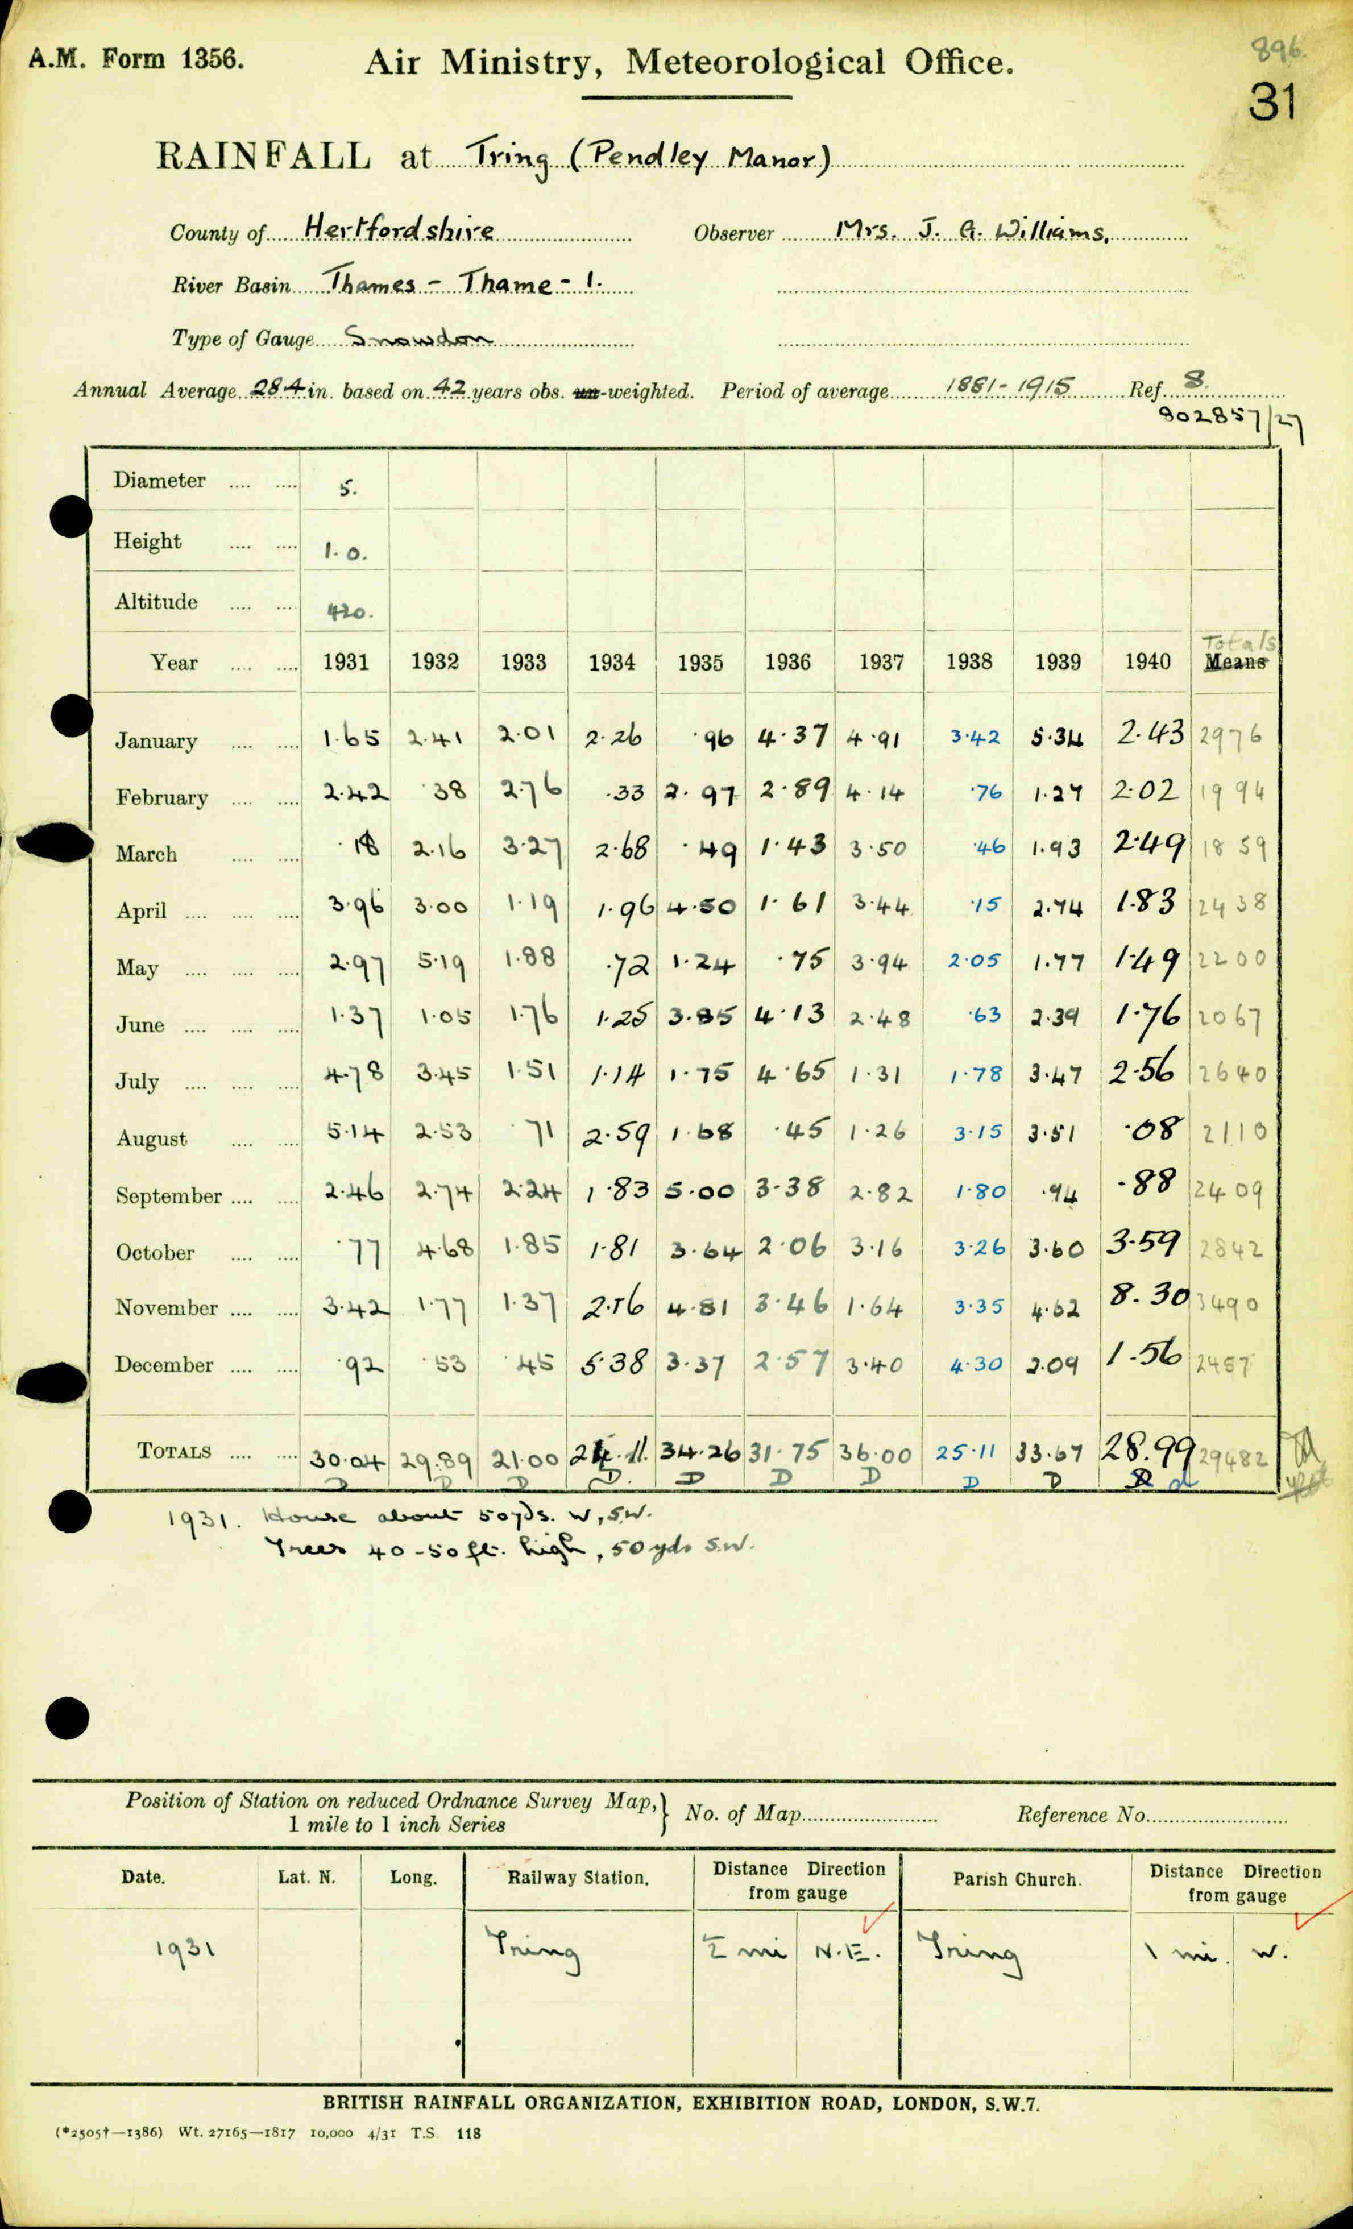 A.M. Form 1356.
Air Ministry, Meteorological Office.
896.
31
RAINFALL at Tring (Pendley Manor)
County of Hertfordshire Observer Mrs. J. G. Williams,
River Basin Thames - Thame - 1.
Type of Gauge Snowdon
Annual Average 28.4 in. based on 42 years obs. un-weighted. Period of average 1881-1915 Ref. 8.
902857/27
Diameter .... .... 5.
Height .... .... 1.0.
Altitude .... .... 420.
Totals
Year .... .... 1931 1932 1933 1934 1935 1936 1937 1938 1939 1940 Means
January .... .... 1.65 2.41 2.01 2.26 .96 4.37 4.91 3.42 5.34 2.43 2976
February .... .... 2.42 .38 2.76 .33 2.97 2.89 4.14 .76 1.27 2.02 1994
March .... .... .18 2.16 3.27 2.68 .49 1.43 3.50 .46 1.93 2.49 1859
April .... .... .... 3.96 3.00 1.19 1.96 4.50 1.61 3.44 .15 2.74 1.83 2438
May .... .... .... 2.97 5.19 1.88 .72 1.24 .75 3.94 2.05 1.77 1.49 2200
June .... .... .... 1.37 1.05 1.76 1.25 3.85 4.13 2.48 .63 2.39 1.76 2067
July .... .... .... 4.78 3.45 1.51 1.14 1.75 4.65 1.31 1.78 3.47 2.56 2640
August .... .... 5.14 2.53 .71 2.59 1.68 .45 1.26 3.15 3.51 .08 2110
September .... .... 2.46 2.74 2.24 1.83 5.00 3.38 2.82 1.80 .94 .88 2409
October .... .... .77 4.68 1.85 1.81 3.64 2.06 3.16 3.26 3.60 3.59 2842
November .... .... 3.42 1.77 1.37 2.16 4.81 3.46 1.64 3.35 4.62 8.30 3490
December .... .... .92 .53 .45 5.38 3.37 2.57 3.40 4.30 2.09 1.56 2457
TOTALS .... .... 30.04 29.89 21.00 24.11. 34.26 31.75 36.00 25.11 33.67 28.99 29482
D D D D. D D D D D
1931. House about 50yds. W, SW.
Trees 40-50 ft. high, 50 yds S.W.
Position of Station on reduced Ordnance Survey Map,} No. of Map Reference No.
1 mile to 1 inch Series
Date. Lat. N. Long. Railway Station. Distance Direction from gauge Parish Church. Distance Direction from gauge
1931 Tring mi N.E. Tring 1 mi. W.
BRITISH RAINFALL ORGANIZATION, EXHIBITION ROAD, LONDON, S.W.7.
(*2505†—1386) Wt. 27165—1817 10,000 4/31 T.S. 118